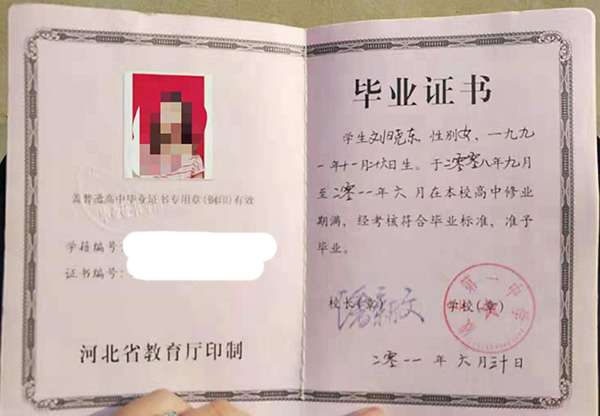 盖普通高中毕业证书专用章(钢印)有效
学籍编号:
证书编号:
河北省教育厅印制
毕业证书
学生刘晓东,性别女,一九九
一年十一月廿六日生。于二〇〇八年九月
至二〇一一年六月在本校高中修业
期满,经考核符合毕业标准,准予
毕业。
校长(章)
学校(章)
第一中学
二〇一一年六月三十日